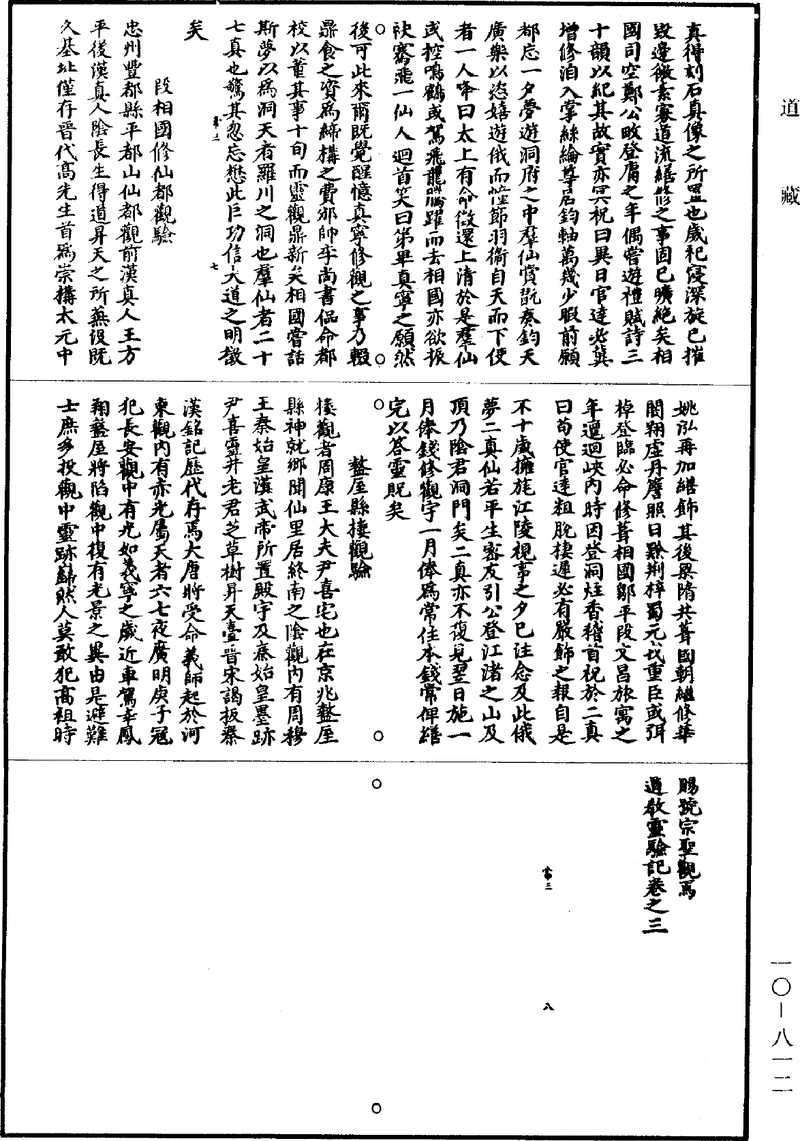 道藏
真得刻石真像之所置也歲祀寖深旋已摧
毀邊徼素寡道流繕修之事固已曠絕矣相
國司空鄭公畋登庸之年偶嘗遊禮賦詩三
十韻以紀其故實亦冥祝曰異日官達必冀
增修洎入掌絲綸尊居鈞軸萬幾少暇前願
都忘一夕夢遊洞府之中羣仙賞翫奏鈞天
廣樂以恣嬉遊俄而幢節羽衛自天而下使
者一人啐曰太上有命徵還上清於是羣仙
或控鳴鶴或駕飛龍騰躍而去相國亦欲振
袂騫飛一仙人迴首笑曰第畢真寧之願然
後可此來爾既覺醒憶真寧修觀之事乃輟
鼎食之資為締構之費邠帥李尚書侃命都
校以董其事十旬而靈觀鼎新矣相國嘗話
斯夢以為洞天者羅川之洞也羣仙者二十
七真也驚其忽忘懋此巨功信大道之明徵
矣
七
段相國修仙都觀驗
忠州豐都縣平都山仙都觀前漢真人王方
平後漢真人陰長生得道昇天之所蕪沒既
久基址僅存晉代高先生首為崇構太元中
姚泓再加繕飾其後梁隋共葺國朝繼修華
閣翔虛丹簷照日黔荆梓蜀元戎重臣或弭
棹登臨必命修葺相國鄒平段文昌旅寓之
年邅迴峽內時因登洞炷香稽首祝於二真
曰苟使官達粗脫棲遲必有嚴飾之報自是
不十歲擁旄江陵視事之夕已注念及此俄
夢二真仙若平生密友引公登江渚之山及
頂乃陰君洞門矣二真亦不復見翌日施一
月俸錢修觀宇一月俸為常住本錢常俾繕
完以答靈貺矣
盩厔縣樓觀驗
樓觀者周康王大夫尹喜宅也在京兆盩厔
縣神就鄉聞仙里居終南之陰觀內有周穆
王秦始皇漢武帝所置殿宇及秦始皇墨跡
尹喜靈井老君芝草樹昇天臺晉宋謁板秦
漢銘記歷代存焉大唐將受命義師起於河
東觀內有赤光屬天者六七夜廣明庚子寇
犯長安觀中有光如義寧之歲近車駕幸鳳
翔盩厔將陷觀中復有光景之異由是避難
士庶多投觀中靈跡巋然人莫敢犯高祖時
賜號宗聖觀焉
道教靈驗記卷之三
常三
八
一〇—八一二